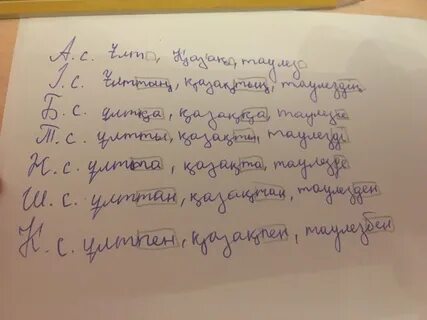 А. с. Ұлт, Қазақ, таулез
І. с. Ұлттың, қазақтың, таулездің
Б. с ұлтқа, қазаққа, таулезге
Т. с. ұлтты, қазақты, таулезді
Ж. с ұлтта, қазақта, таулезде
Ш. с. ұлттан, қазақтан, таулезден
К. с ұлтпен, қазақпен, таулезбен